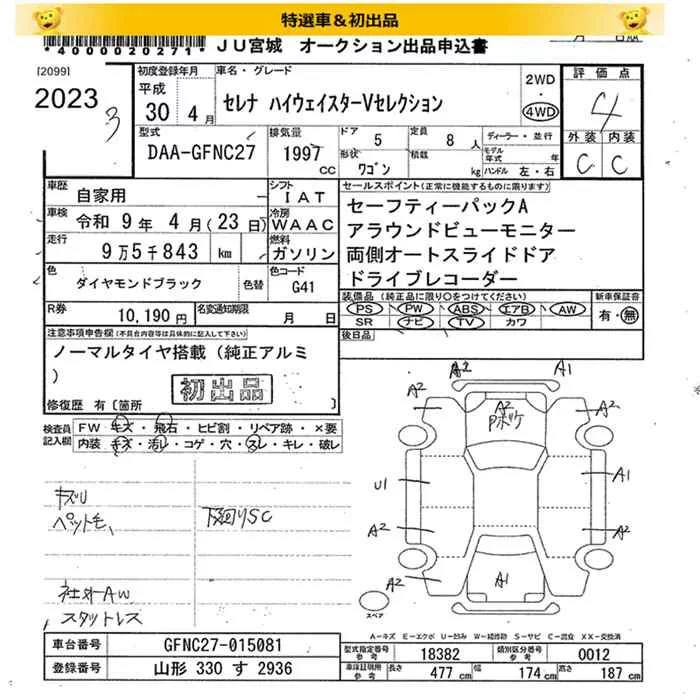 特選車＆初出品
*4000020271*
JU宮城 オークション出品申込書
[2099]
2023
3
初度登録年月
平成
30 4月
車名・グレード
セレナ ハイウェイスターVセレクション
2WD
・
4WD
評価点
4
外装 内装
C C
型式
DAA-GFNC27
排気量
1997 CC
ドア 5
形状 ワゴン
定員 8 人
積載 kg
ディーラー・並行
モデル年式 年
ハンドル 左・右
車歴 自家用
シフト IAT
車検 令和 9年 4月(23日)
冷房 WAAC
走行 9万5千843 km
燃料 ガソリン
色 ダイヤモンドブラック 色替
色コード G41
R券 10,190円
名変通知期限 月 日
セールスポイント(正常に機能するものに限ります)
セーフティーパックA
アラウンドビューモニター
両側オートスライドドア
ドライブレコーダー
装備品(純正品に限り○をつけてください)
PS PW ABS エアB AW
SR ナビ TV カワ
新車保証書
有・無
後日品
注意事項申告欄(不具合内容等は具体的に記入して下さい)
ノーマルタイヤ搭載(純正アルミ
)
初出品
修復歴 有〔箇所 〕
検査員記入欄
FW キズ・飛石・ヒビ割・リペア跡・×要
内装 キズ・汚レ・コゲ・穴・スレ・キレ・破レ
キズU
ペット毛、
下廻りSC
社外AW
スタットレス
A2 A1
A2 A2 A2
Pボケ
U1 A1
A2 A2
A2 A1
スペア
A－キズ E－エクボ U－凹み W－補修跡 S－サビ C－腐食 XX－交換済
車台番号 GFNC27-015081
登録番号 山形 330 す 2936
型式指定番号 参考 18382
類別区分番号 参考 0012
車庫証明用 参考 長さ 477 cm 幅 174 cm 高さ 187 cm